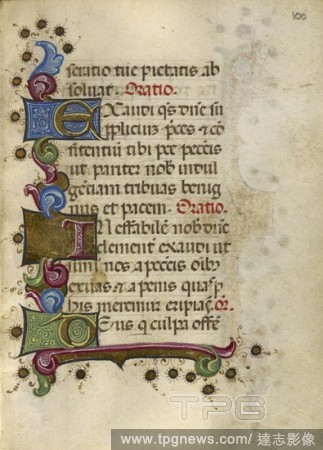 100
seratio tue pietatis ab
soluat. Oratio.
EXaudi qs dne su
pplicium pces & co
fitentiu tibi pce peccis
ut pariter nob indul
gentiam tribuas benig
nus et pacem. Oratio.
INeffabile nob dne
clementi exaudi ut
simul nos a peccis oib
exuas & a penis quas p
his meremur eripias. Or.
DEus q culpa offe
TPG
www.tpgnews.com / 達志影像